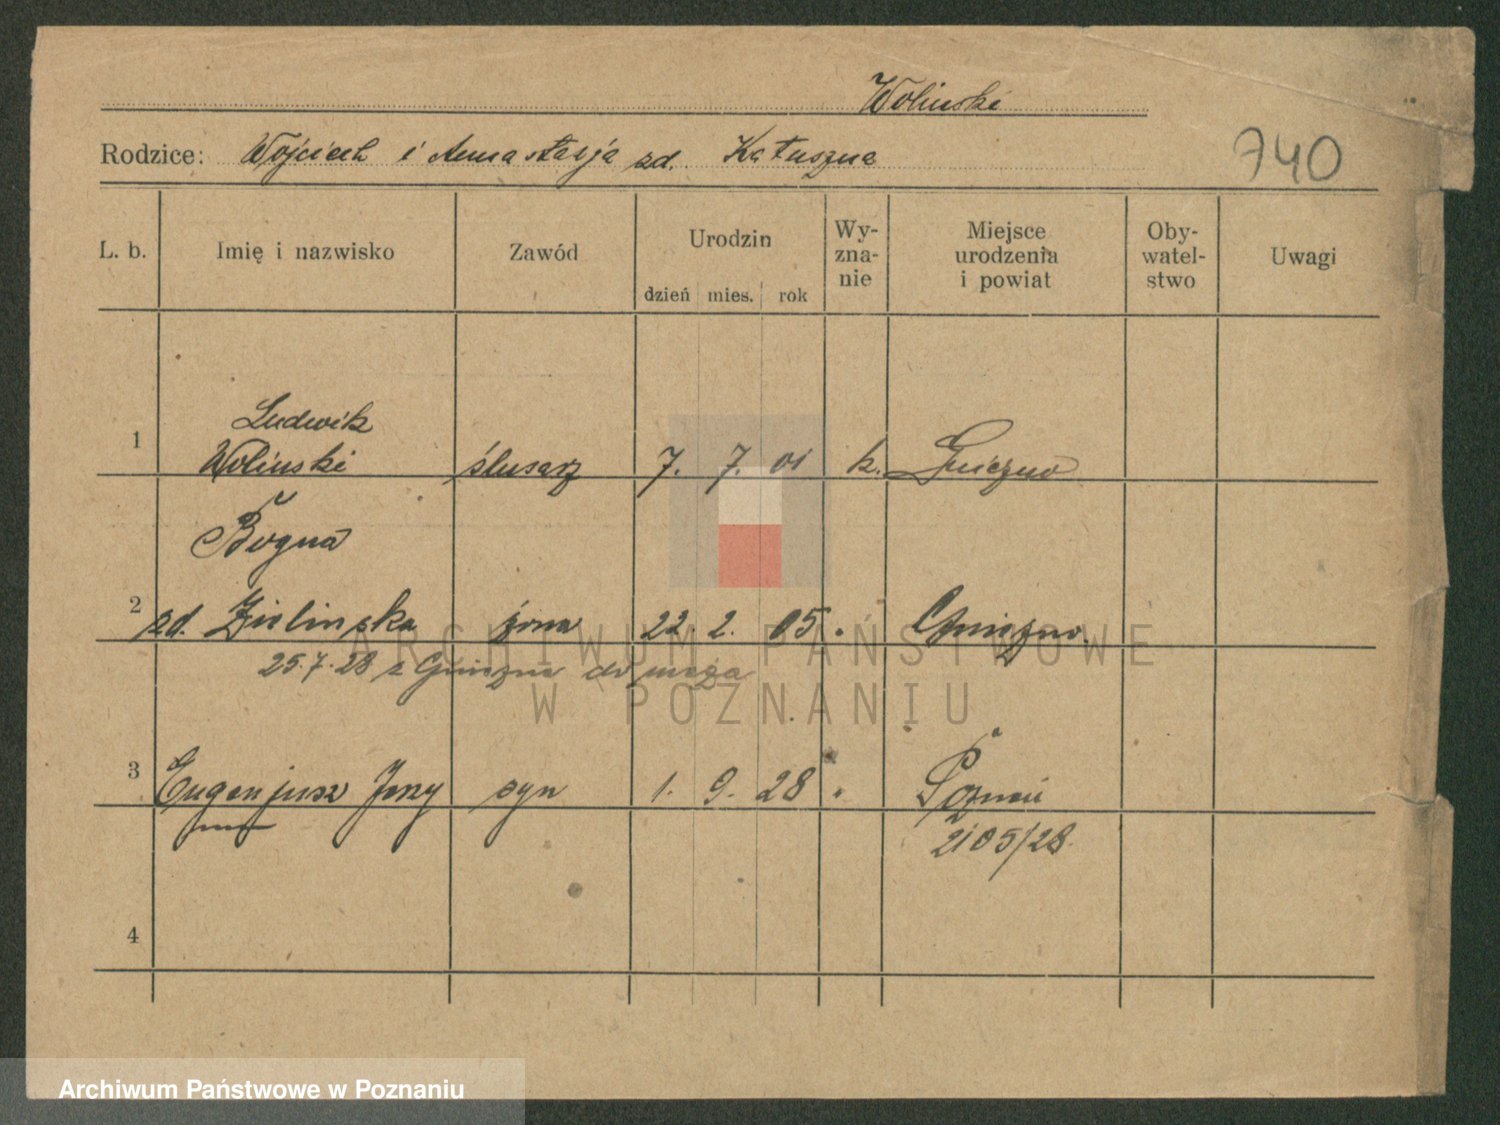 Wolinski
Rodzice: Wojciech i Anastazja zd. Kałuszna
740
L. b. Imię i nazwisko Zawód Urodzin dzień mies. rok Wy-zna-nie Miejsce urodzenia i powiat Oby-watel-stwo Uwagi
Ludwik
1 Wolinski ślusarz 7. 7. 01 k. Gniezno
Bogna
2 zd. Zielinska żona 22. 2. 05. " Gniezno.
25.7.28 z Gniezna do męża
3 Eugenjusz Jerzy syn 1. 9. 28 " Poznań
2105/28
4
ARCHIWUM PAŃSTWOWE
W POZNANIU
Archiwum Państwowe w Poznaniu